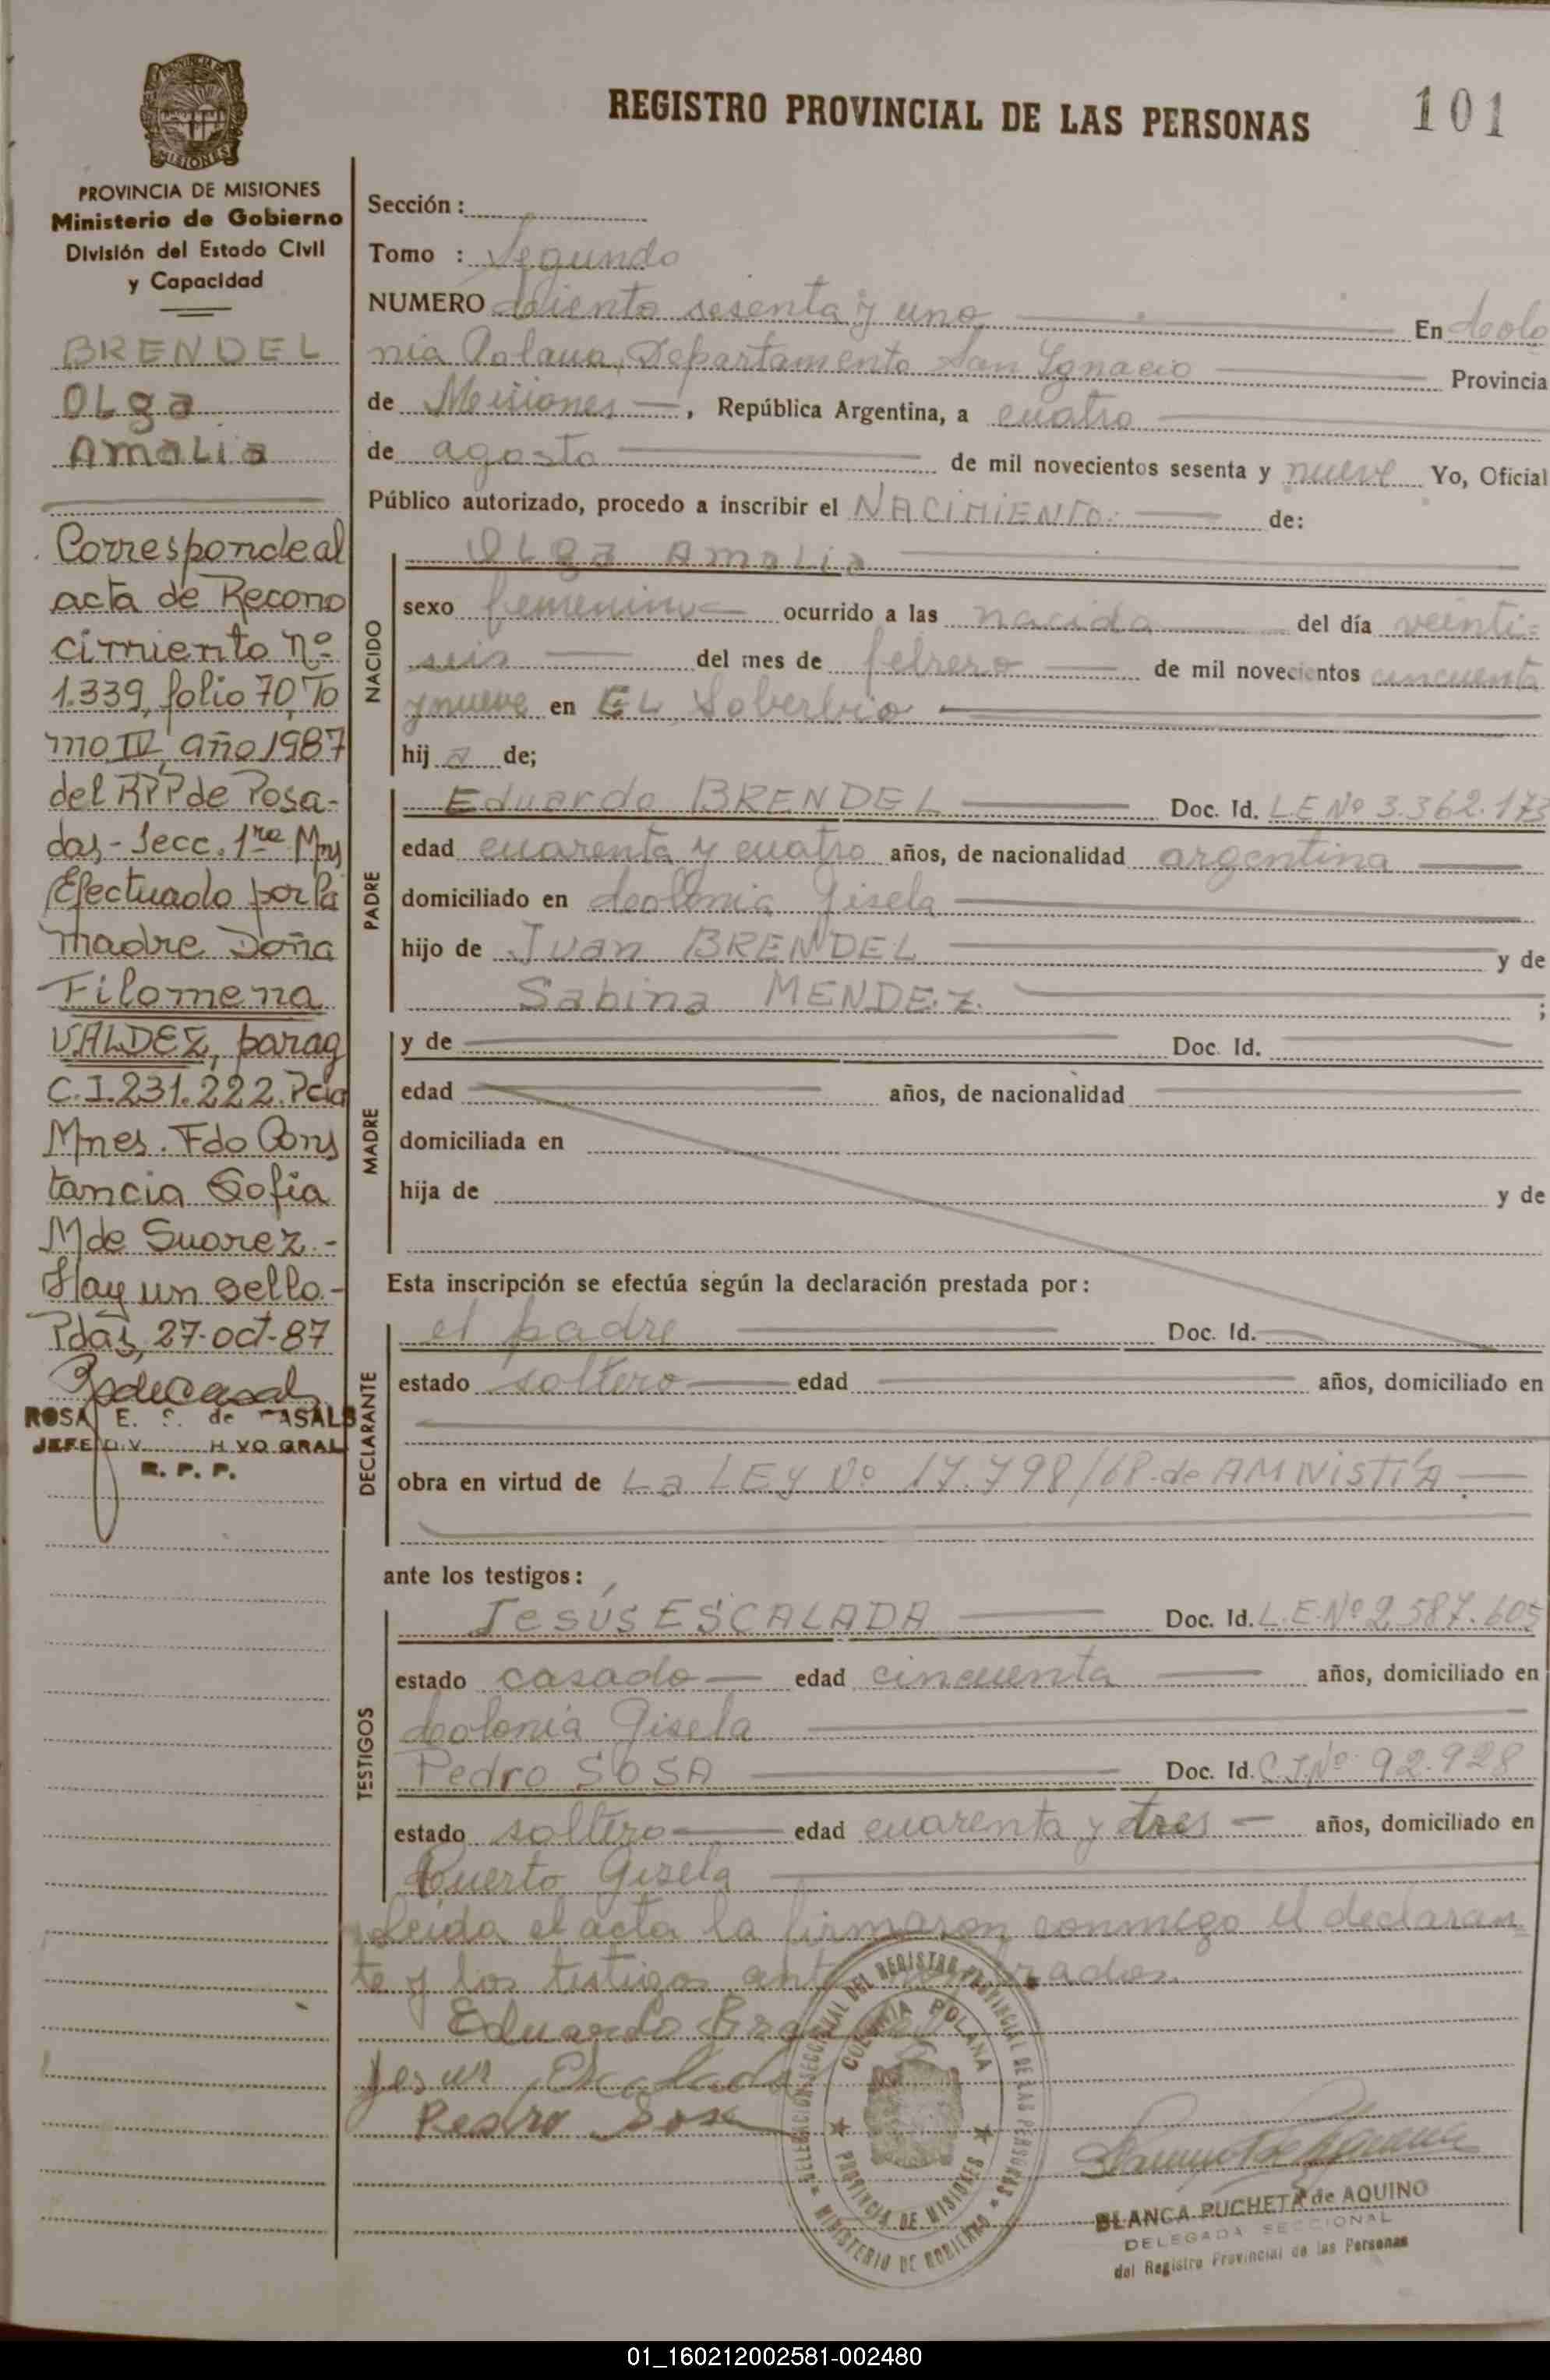 REGISTRO PROVINCIAL DE LAS PERSONAS
101
PROVINCIA DE MISIONES
MISIONES
PROVINCIA DE MISIONES
Ministerio de Gobierno
División del Estado Civil
y Capacidad
BRENDEL
OLga
AmaLia
Corresponde al
acta de Recono
cimiento nº
1.339, folio 70, To
mo IV, año 1987
del RPP de Posa-
das - Secc. 1ra Mns
Efectuado por la
madre Doña
Filomena
VALDEZ, parag
C.I. 231.222. Pcia
Mnes. Fdo Cons
tancia Sofia
M de Suarez.-
Hay un sello.-
Pdas, 27-oct-87
ROSA E. de CASALS
JEFE DIV. GRAL
R. P. P.
Sección :
Tomo : Segundo
NUMERO ciento sesenta y uno En Colo
nia Polana, Departamento San Ignacio Provincia
de Misiones, República Argentina, a cuatro
de agosto de mil novecientos sesenta y nueve Yo, Oficial
Público autorizado, procedo a inscribir el NACIMIENTO. de:
NACIDO
OLga AmaLia
sexo femenino ocurrido a las nacida del día veinti-
seis del mes de febrero de mil novecientos cincuenta
y nueve en EL Soberbio
hij a de;
PADRE
Eduardo BRENDEL Doc. Id. LE Nº 3.362.173
edad cuarenta y cuatro años, de nacionalidad argentina
domiciliado en Colonia Gisela
hijo de Juan BRENDEL y de
Sabina MENDEZ. ;
MADRE
y de Doc. Id.
edad años, de nacionalidad
domiciliada en
hija de y de
Esta inscripción se efectúa según la declaración prestada por:
DECLARANTE
el padre Doc. Id.
estado soltero edad años, domiciliado en
obra en virtud de La LEy Nº 17.798/68 de AMNiSTíA.
ante los testigos:
TESTIGOS
JesÚS ESCALADA Doc. Id. L.E.Nº 2.587.605
estado casado edad cincuenta años, domiciliado en
Colonia Gisela
Pedro SOSA Doc. Id. C.I.Nº 92.928
estado soltero edad cuarenta y tres años, domiciliado en
Puerto Gisela
Leída el acta la firmaron conmigo el declaran
te y los testigos
Eduardo Brendel
Jesus Escalada
Pedro Sosa
DELEGACION SECCIONAL DEL REGISTRO PROVINCIAL DE LAS PERSONAS
MINISTERIO DE GOBIERNO
COLONIA POLANA
PROVINCIA DE MISIONES
BLANCA PUCHETA de AQUINO
DELEGADA SECCIONAL
del Registro Provincial de las Personas
01_160212002581-002480